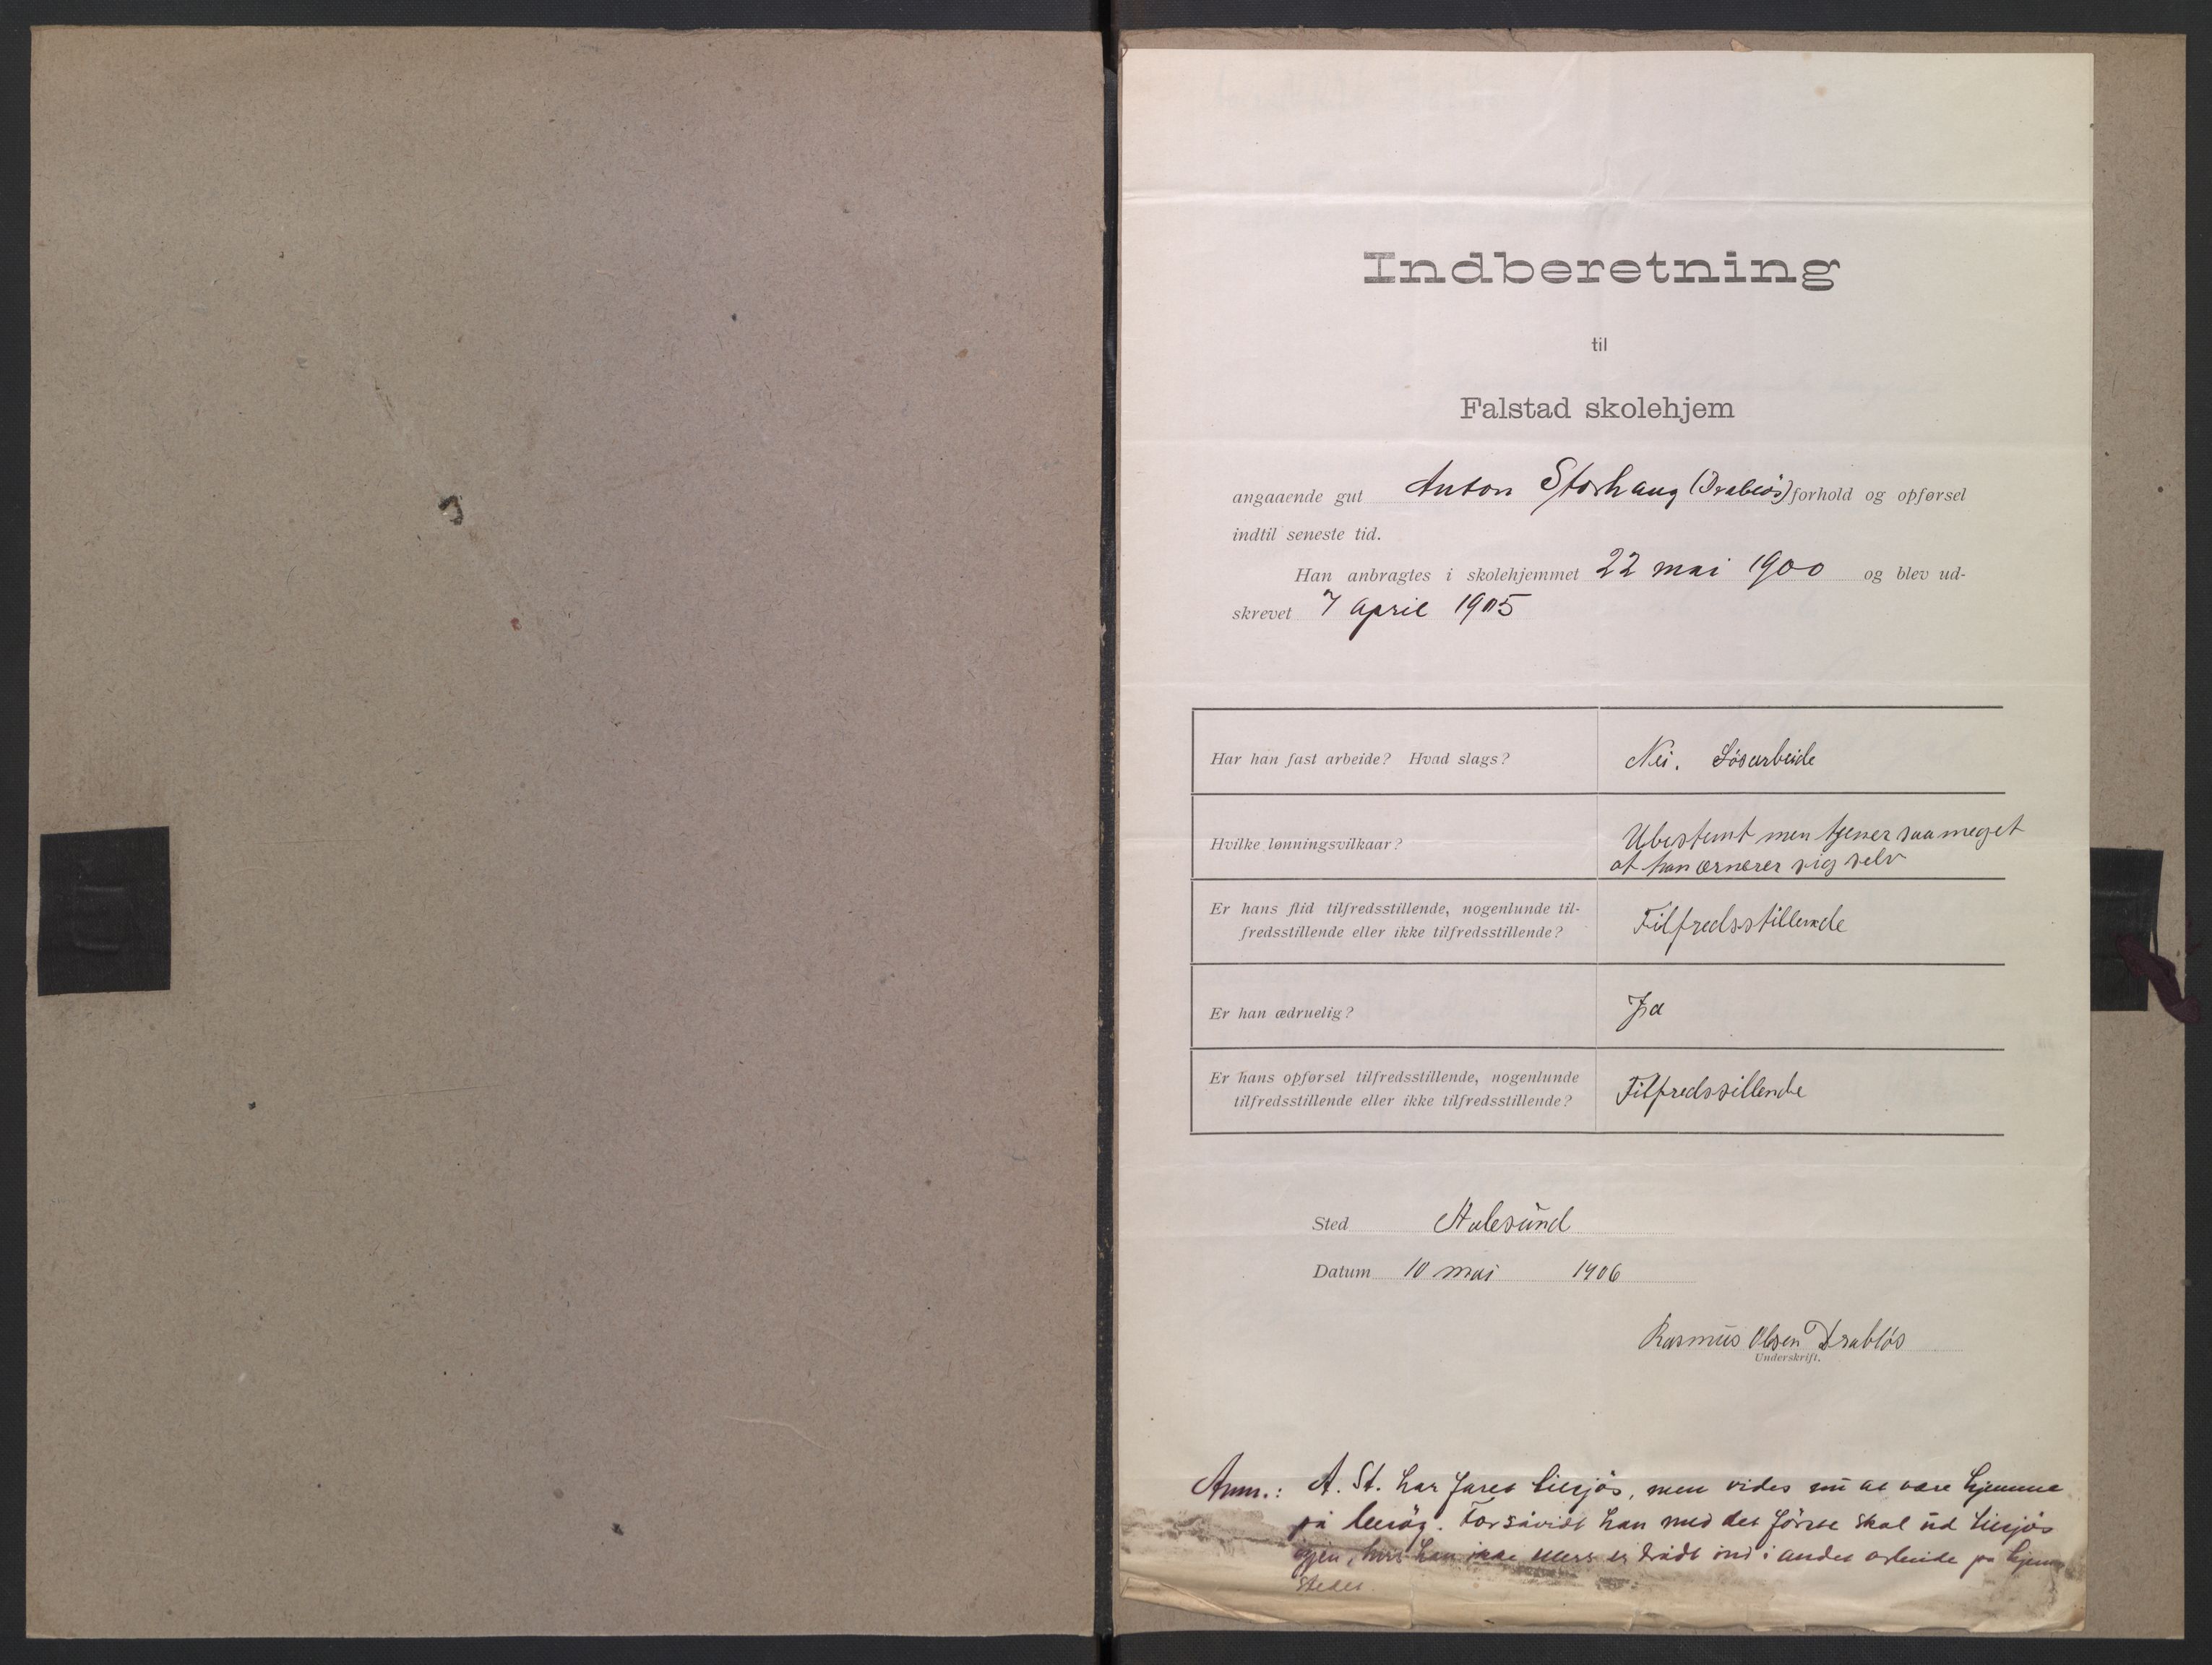 Indberetning
til
Falstad skolehjem
angaaende gut Anton Storhaug (Drabløs) forhold og opførsel
indtil seneste tid.
Han anbragtes i skolehjemmet 22 mai 1900 og blev ud-
skrevet 7 april 1905
Har han fast arbeide? Hvad slags? Nei. Løsarbeide
Hvilke lønningsvilkaar? Ubestemt men tjener saa meget
at han ernærer sig selv
Er hans flid tilfredsstillende, nogenlunde til-
fredsstillende eller ikke tilfredsstillende? Tilfredsstillende
Er han ædruelig? Ja
Er hans opførsel tilfredsstillende, nogenlunde
tilfredsstillende eller ikke tilfredsstillende? Tilfredssillende
Sted Aalesund
Datum 10 mai 1906
Rasmus Olsen Drabløs
Underskrift.
Anm.: A. St. har faret tilsjøs, men vides nu at være hjemme
på . Forsåvidt han med det første skal ud tilsjøs
igjen, hvis han ikke er trådt ind i andet arbeide på hjem-
stedet.